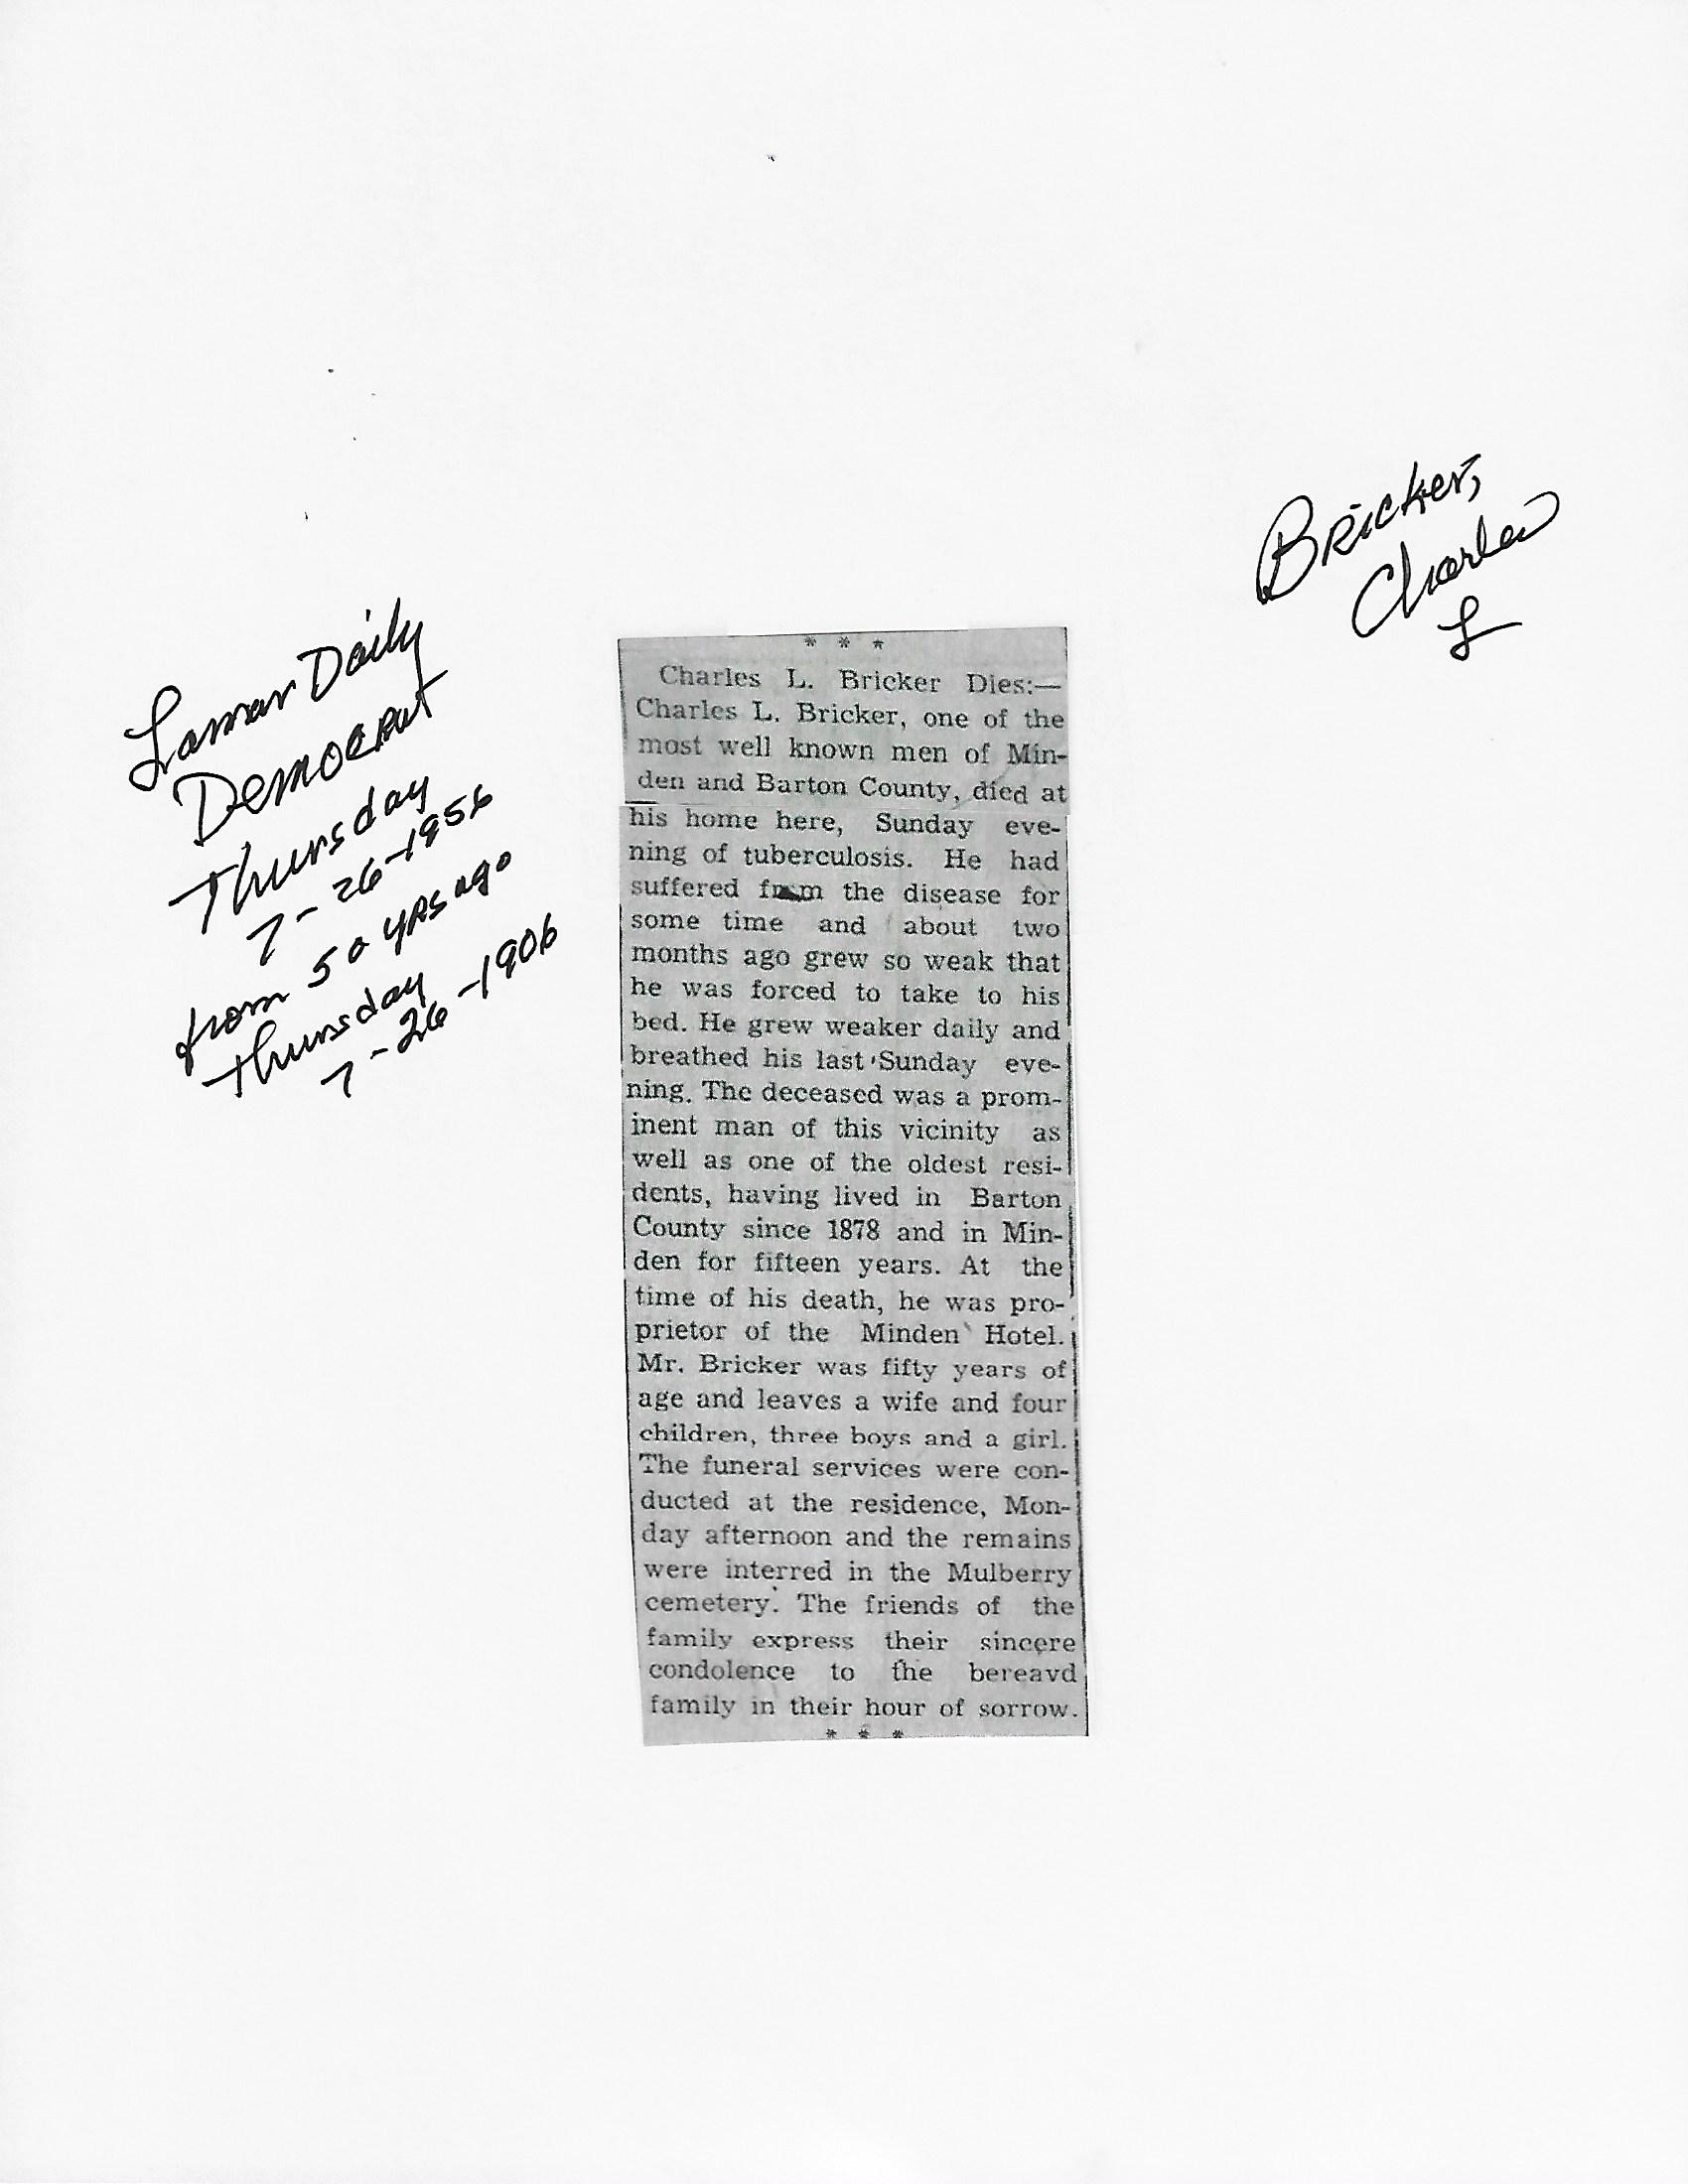 Bricker,
Charles
L
Lamar Daily
Democrat
Thursday
7-26-1956
from 50 yrs ago
Thursday
7-26-1906
* * *
Charles L. Bricker Dies:—
Charles L. Bricker, one of the
most well known men of Min-
den and Barton County, died at
his home here, Sunday eve-
ning of tuberculosis. He had
suffered from the disease for
some time and about two
months ago grew so weak that
he was forced to take to his
bed. He grew weaker daily and
breathed his last Sunday eve-
ning. The deceased was a prom-
inent man of this vicinity as
well as one of the oldest resi-
dents, having lived in Barton
County since 1878 and in Min-
den for fifteen years. At the
time of his death, he was pro-
prietor of the Minden Hotel.
Mr. Bricker was fifty years of
age and leaves a wife and four
children, three boys and a girl.
The funeral services were con-
ducted at the residence, Mon-
day afternoon and the remains
were interred in the Mulberry
cemetery. The friends of the
family express their sincere
condolence to the bereavd
family in their hour of sorrow.
* * *